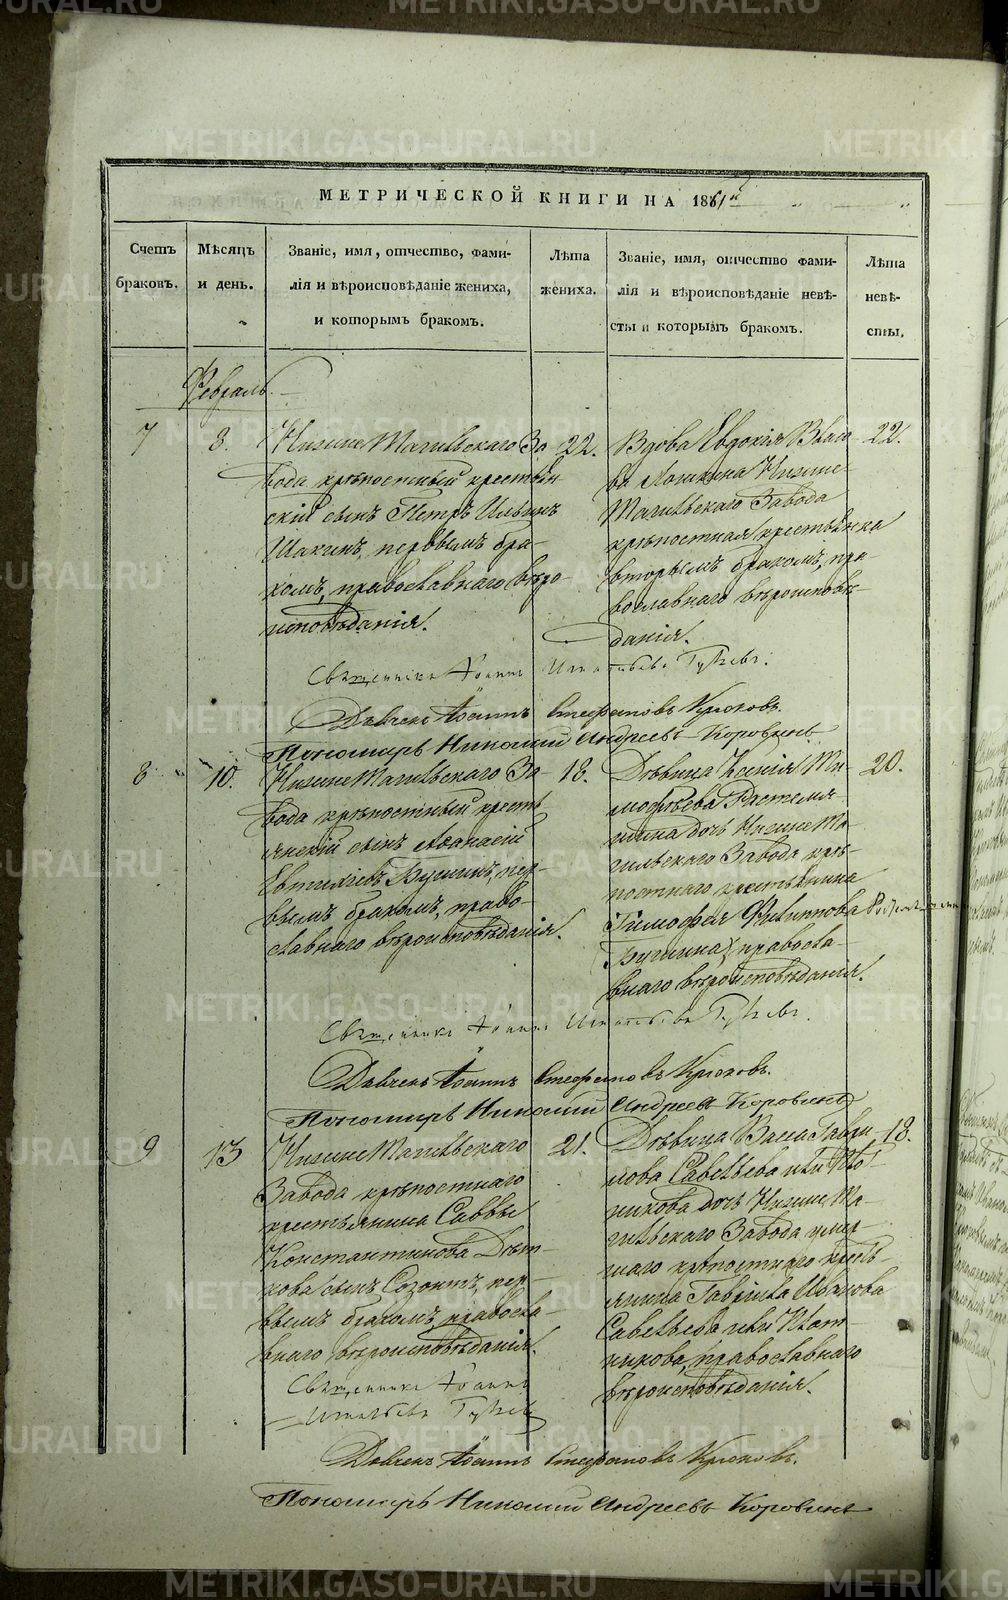 МЕТРИЧЕСКОЙ КНИГИ НА 1861й
Счетъ браковъ.
Мѣсяцъ и день.
Званіе, имя, отчество, фами-
лія и вѣроисповѣданіе жениха,
и которымъ бракомъ.
Лѣта жениха.
Званіе, имя, отчество фами-
лія и вѣроисповѣданіе невѣ-
сты и которымъ бракомъ.
Лѣта невѣ-
сты.
Февраль.
7
8.
Нижне Тагильскаго За-
вода крѣпостный крестьян
скій сынъ Петръ Ильинъ
Шакинъ, первымъ бра-
комъ, православнаго вѣро-
исповѣданія.
22.
Вдова Евдокія Власо-
ва Нижне-
Тагильскаго Завода
крѣпостная крестьянка
вторымъ бракомъ, пра-
вославнаго вѣроисповѣ-
данія.
22.
Священникъ Іоаннъ Игнатьевъ
Дьячекъ Іоаннъ Стефановъ Крюковъ.
Пономарь Николай Андреевъ Коровинъ
8
10.
Нижне Тагильскаго За-
вода крѣпостный кресть
янскій сынъ Аѳанасій
Евтихіевъ первымъ бракомъ, право-
славнаго вѣроисповѣданія.
18.
Дѣвица Ксенія Ти-
мофѣева
дочь Нижне Та-
гильскаго Завода крѣ-
постнаго крестьянина
Тимофея Филиппова
православ-
наго вѣроисповѣданія.
20.
Священникъ Іоаннъ Игнатьевъ
Дьячекъ Іоаннъ Стефановъ Крюковъ.
Пономарь Николай Андреевъ Коровинъ
9
13
Нижне Тагильскаго
Завода крѣпостнаго
крестьянина Саввы
Константинова
сынъ Созонтъ, пер-
вымъ бракомъ, правосла-
внаго вѣроисповѣданія.
21.
Дѣвица Васса Гаври
лова Савельева или Пло-
никова дочь Нижне Та-
гильскаго Завода умер-
шаго крѣпостнаго кресть
янина Гавріила Иванова
Савельева или Плот-
никова, православнаго
вѣроисповѣданія.
18.
Священникъ Іоаннъ
Игнатьевъ
Дьячекъ Іоаннъ Стефановъ Крюковъ.
Пономарь Николай Андреевъ Коровинъ